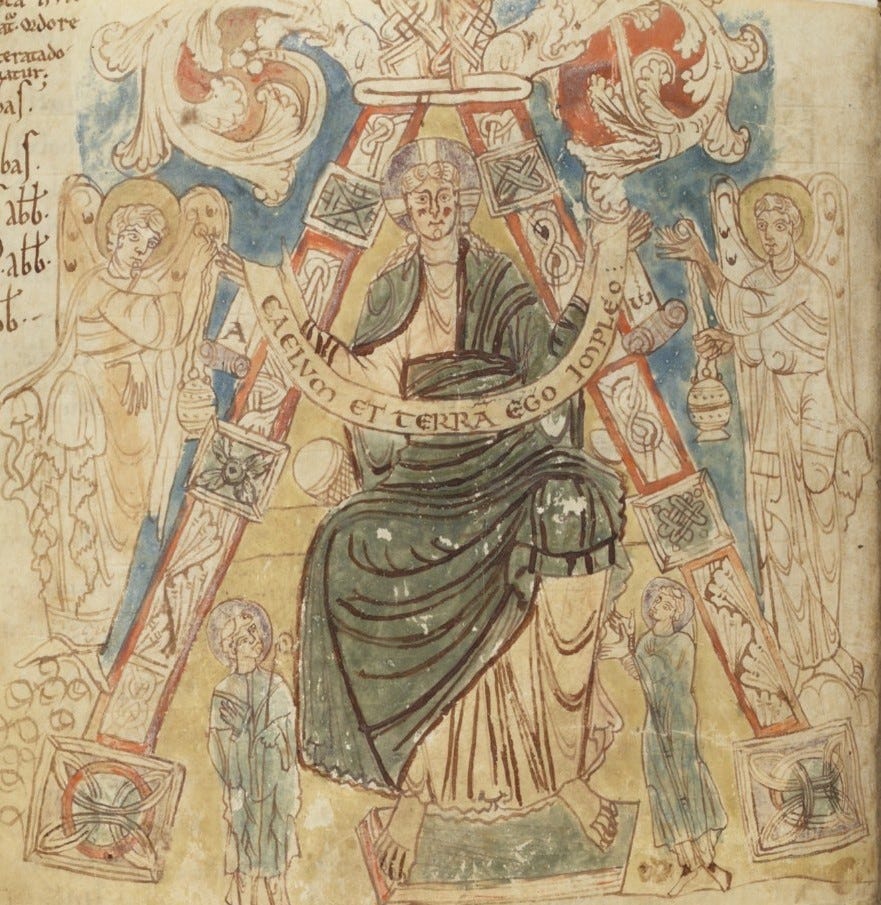 odore
teratado
gatur;
bas.
bas.
abb.
abb.
A ω
CAELVM ET TERRĀ EGO IMPLEO